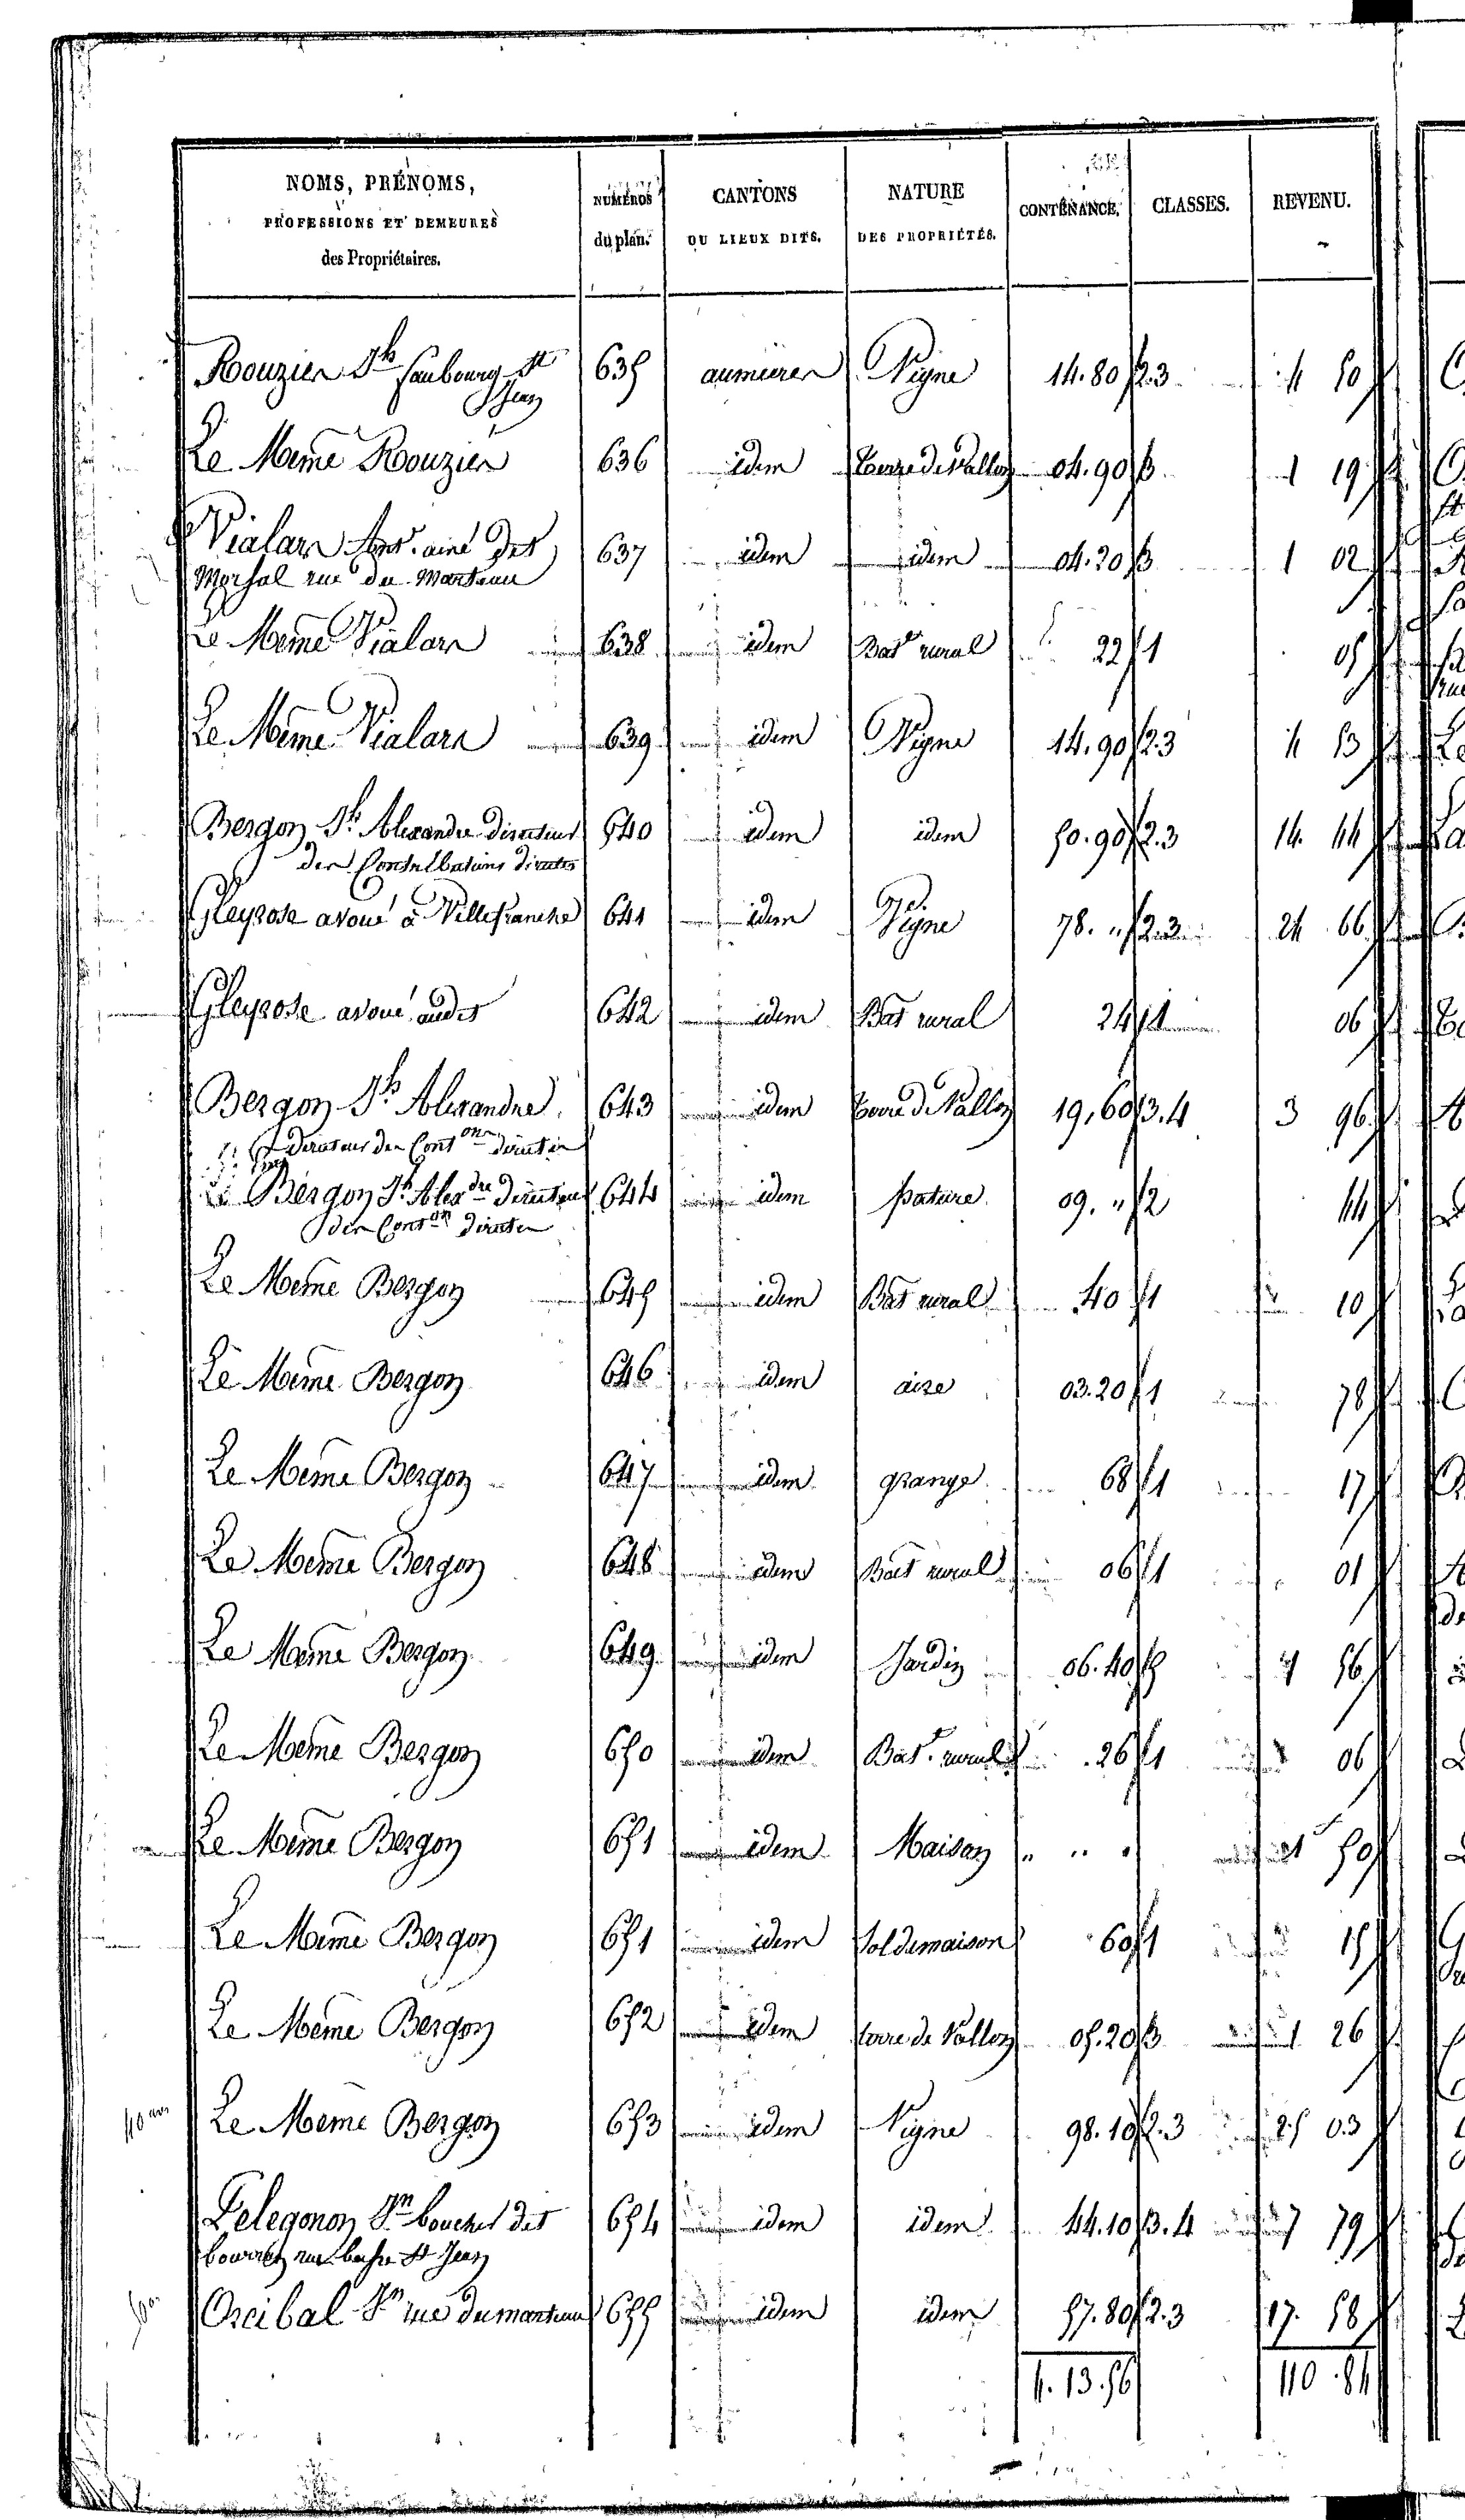 NOMS, PRÉNOMS, PROFESSIONS ET DEMEURES des Propriétaires. | NUMÉROS du plan. | CANTONS OU LIEUX DITS. | NATURE DES PROPRIÉTÉS. | CONTENANCE. | CLASSES. | REVENU.
Rouzier Jh faubourg St Jean 635 aumieres Vigne 14.80 2.3 4 50
Le Meme Rouzier 636 idem terre de Vallon 04.90 3 1 19
Vialars ainé dit
Morsal rue du Marteau 637 idem idem 04.20 3 1 02
Le Meme Vialars 638 idem Bat rural 22 1 05
Le Meme Vialars 639 idem Vigne 14.90 2.3 4 53
Bergon Jh Alexandre directeur 640 idem idem 50.90 2.3 14. 44
des Contributions directes
Gleyrose avoué à Villefranche 641 idem Vigne 78. " 2.3 24 66
Gleyrose avoué audit 642 idem Bat rural 24 1 06
Bergon Jh Alexandre 643 idem terre de Vallon 19,60 3.4 3 96
Directeur des Contons directes
Bergon Jh Alexdre Directeur 644 idem pature 09. " 2 44
des Conton directes
Le Meme Bergon 645 idem Bat rural 40 1 10
Le Meme Bergon 646 idem aire 03.20 1 78
Le Meme Bergon 647 idem grange 68 1 17
Le Meme Bergon 648 idem Bat rural 06 1 01
Le Meme Bergon 649 idem Jardin 06.40 56
Le Meme Bergon 650 idem Bat. rural 26 1 06
Le Meme Bergon 651 idem Maison " " " 50
Le Meme Bergon 651 idem Sol de maison 60 1 15
Le Meme Bergon 652 idem terre de Vallon 05.20 3 1 26
Le Meme Bergon 653 idem Vigne 98.10 2.3 25 03
Pelegonon Jn boucher dit 654 idem idem 44.10 3.4 7 79
rue basse St Jean
Orcibal Jn rue du marteau 655 idem idem 57.80 2.3 17. 58
4. 13.56 110.84